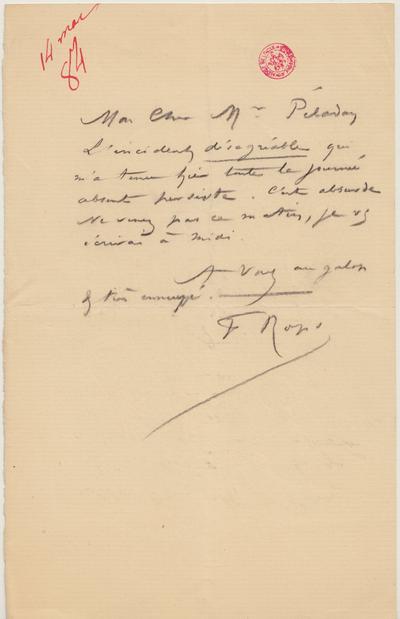 14 mar
84
Mon Cher Mr Péladan
L'incident désagréable qui
m'a tenu hier toute la journée
absent persiste. C'est absurde
Ne venez pas ce matin, je v
écrirai à midi.
A Vous au galop
& très ennuyé.
F Rops